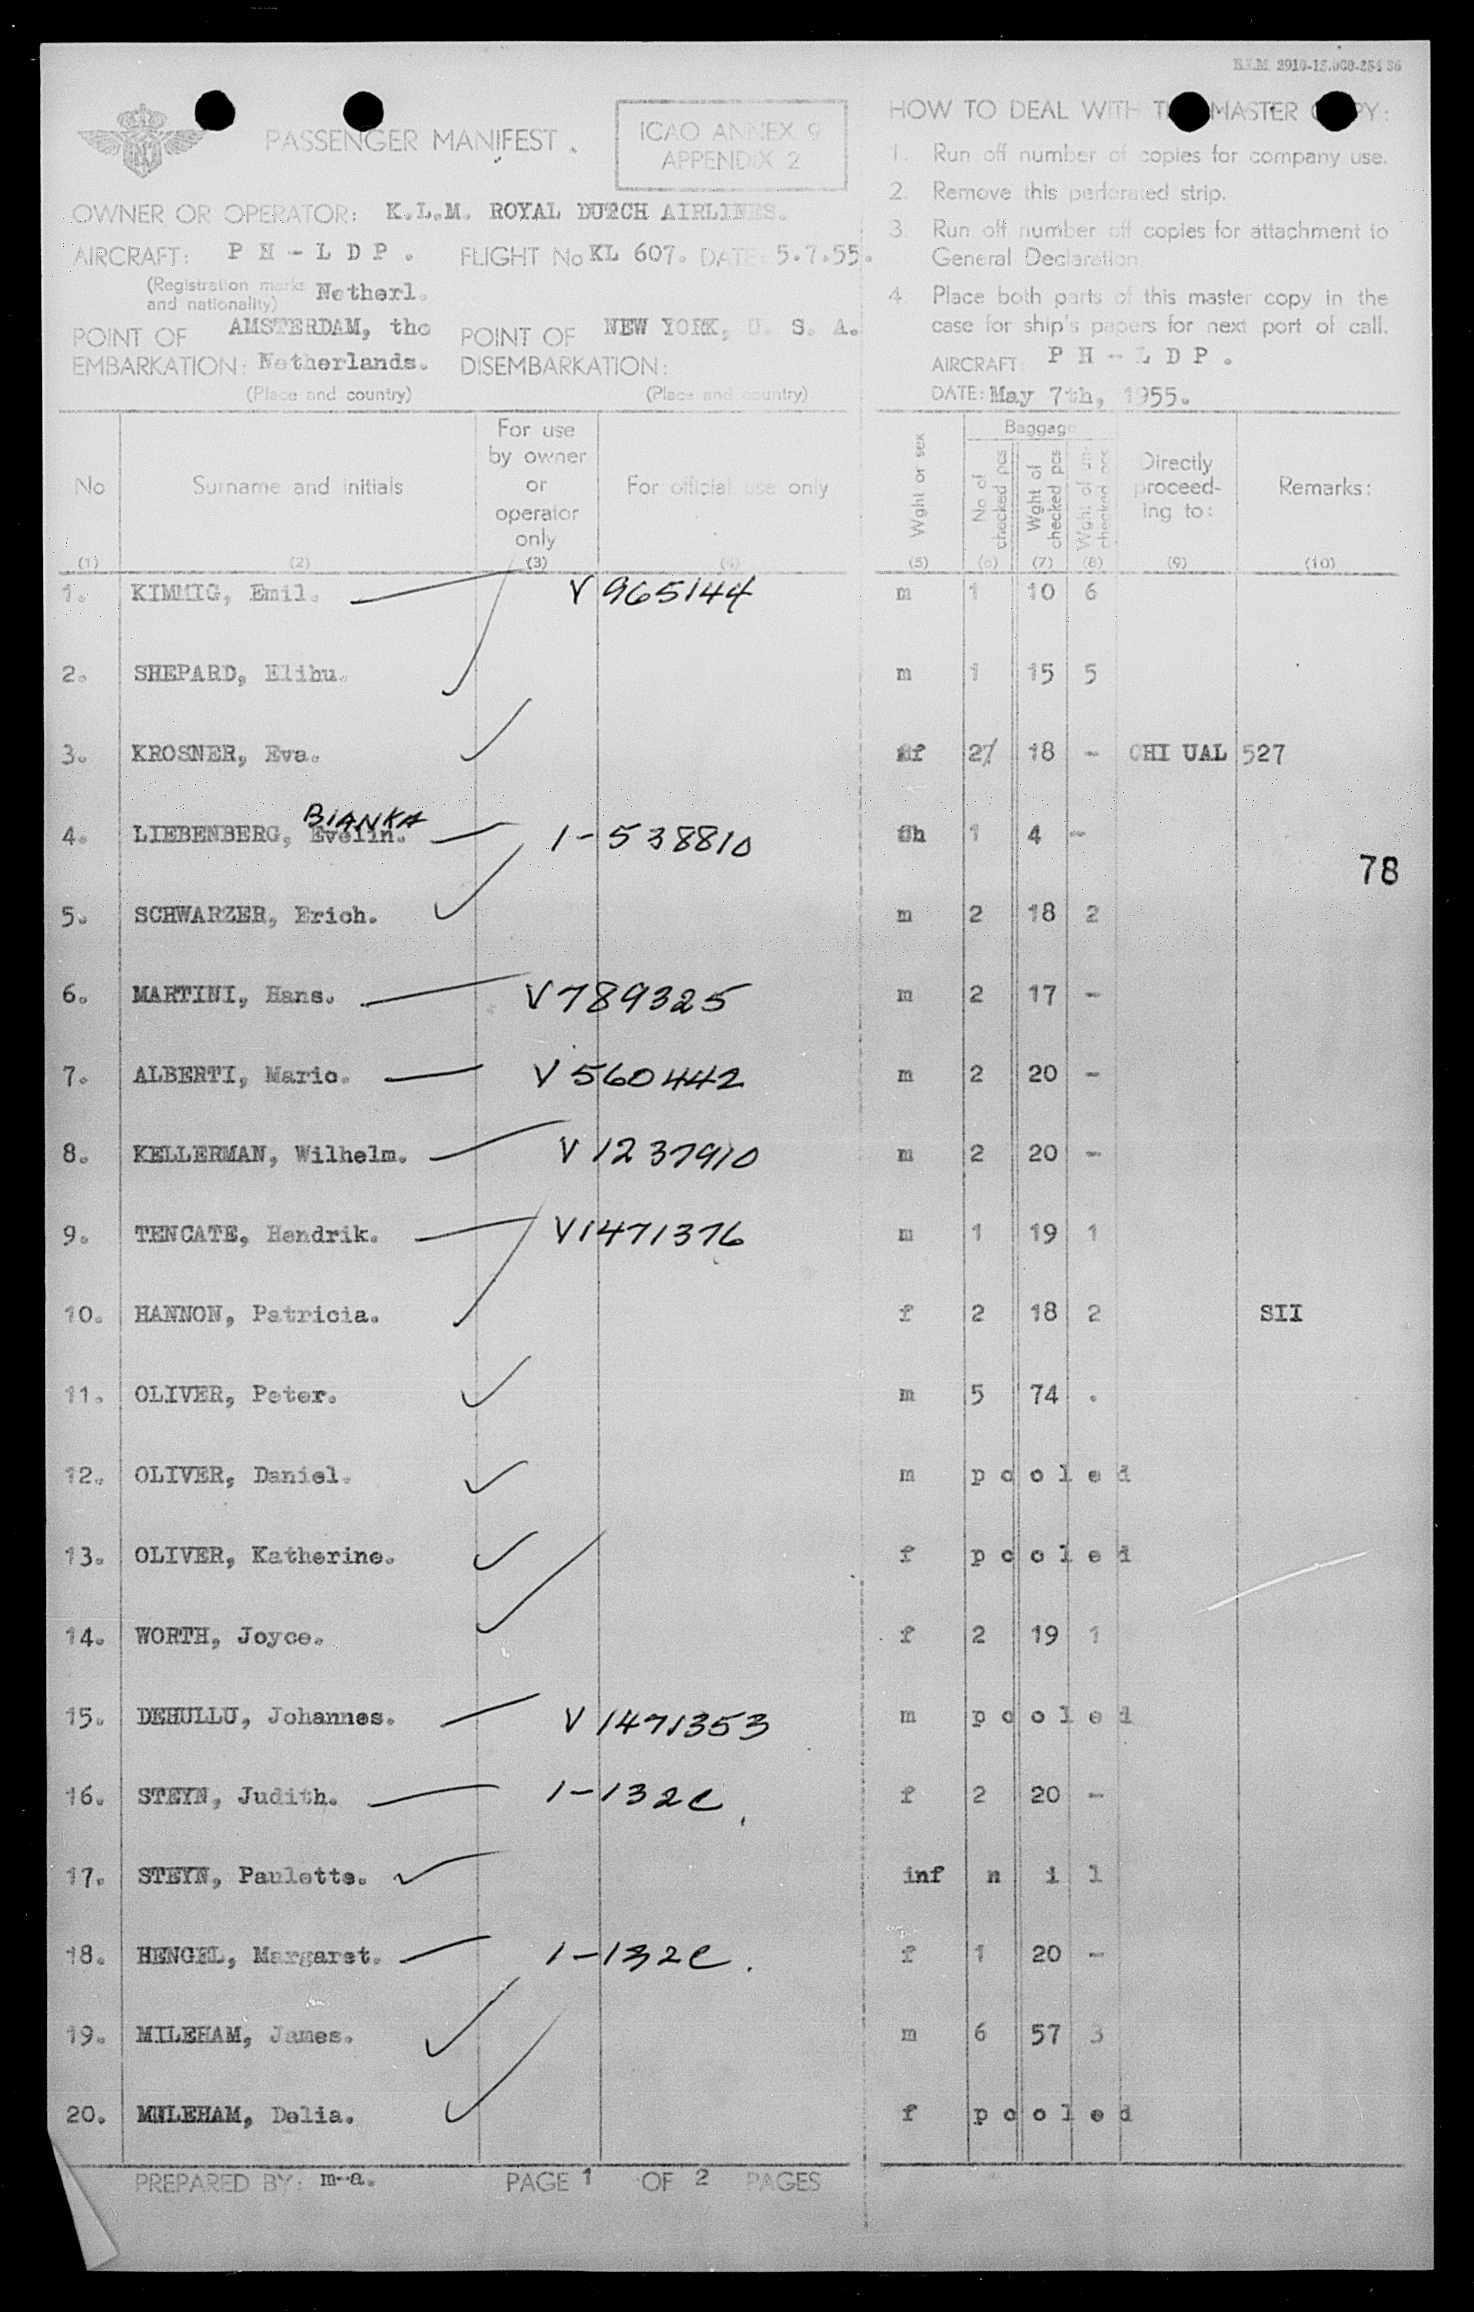 K.L.M. 2910-15.000-254 56
PASSENGER MANIFEST
ICAO ANNEX 9
APPENDIX 2
OWNER OR OPERATOR: K.L.M. ROYAL DUTCH AIRLINES.
AIRCRAFT: P H - L D P . FLIGHT No KL 607. DATE: 5.7.55.
(Registration marks and nationality) Netherl.
POINT OF EMBARKATION: AMSTERDAM, the Netherlands. POINT OF DISEMBARKATION: NEW YORK, U. S. A.
(Place and country) (Place and country)
HOW TO DEAL WITH MASTER PY:
1. Run off number of copies for company use.
2. Remove this perforated strip.
3. Run off number off copies for attachment to
General Declaration
4. Place both parts of this master copy in the
case for ship's papers for next port of call.
AIRCRAFT: P H - L D P .
DATE: May 7th, 1955.
No Surname and initials For use by owner or operator only For official use only Wght or sex Baggage No of checked pcs Wght of checked pcs Wght of un- checked pcs Directly proceed- ing to: Remarks:
(1) (2) (3) (4) (5) (6) (7) (8) (9) (10)
1. KIMMIG, Emil. V 965144 m 1 10 6
2. SHEPARD, Elihu. m 1 15 5
3. KROSNER, Eva. f 2/ 18 - CHI UAL 527
BIANKA
4. LIEBENBERG, Evelin. 1-538810 h 1 4 -
78
5. SCHWARZER, Erich. m 2 18 2
6. MARTINI, Hans. V789325 m 2 17 -
7. ALBERTI, Mario. V 560442 m 2 20 -
8. KELLERMAN, Wilhelm. V 1237910 m 2 20 -
9. TENCATE, Hendrik. V1471376 m 1 19 1
10. HANNON, Patricia. f 2 18 2 SII
11. OLIVER, Peter. m 5 74 .
12. OLIVER, Daniel. m p o o l e d
13. OLIVER, Katherine. f p o o l e d
14. WORTH, Joyce. f 2 19 1
15. DEHULLU, Johannes. V 1471353 m p o o l e d
16. STEYN, Judith. 1-132C. f 2 20 -
17. STEYN, Paulette. inf n i l
18. HENGEL, Margaret. 1-132C. f 1 20 -
19. MILEHAM, James. m 6 57 3
20. MILEHAM, Delia. f p o o l e d
PREPARED BY: m-a. PAGE 1 OF 2 PAGES